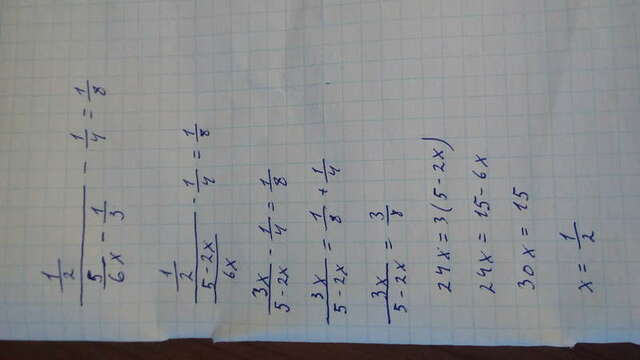 (1/2)/(5/(6x) - 1/3) - 1/4 = 1/8
(1/2)/((5-2x)/(6x)) - 1/4 = 1/8
3x/(5-2x) - 1/4 = 1/8
3x/(5-2x) = 1/8 + 1/4
3x/(5-2x) = 3/8
24x = 3(5-2x)
24x = 15-6x
30x = 15
x = 1/2